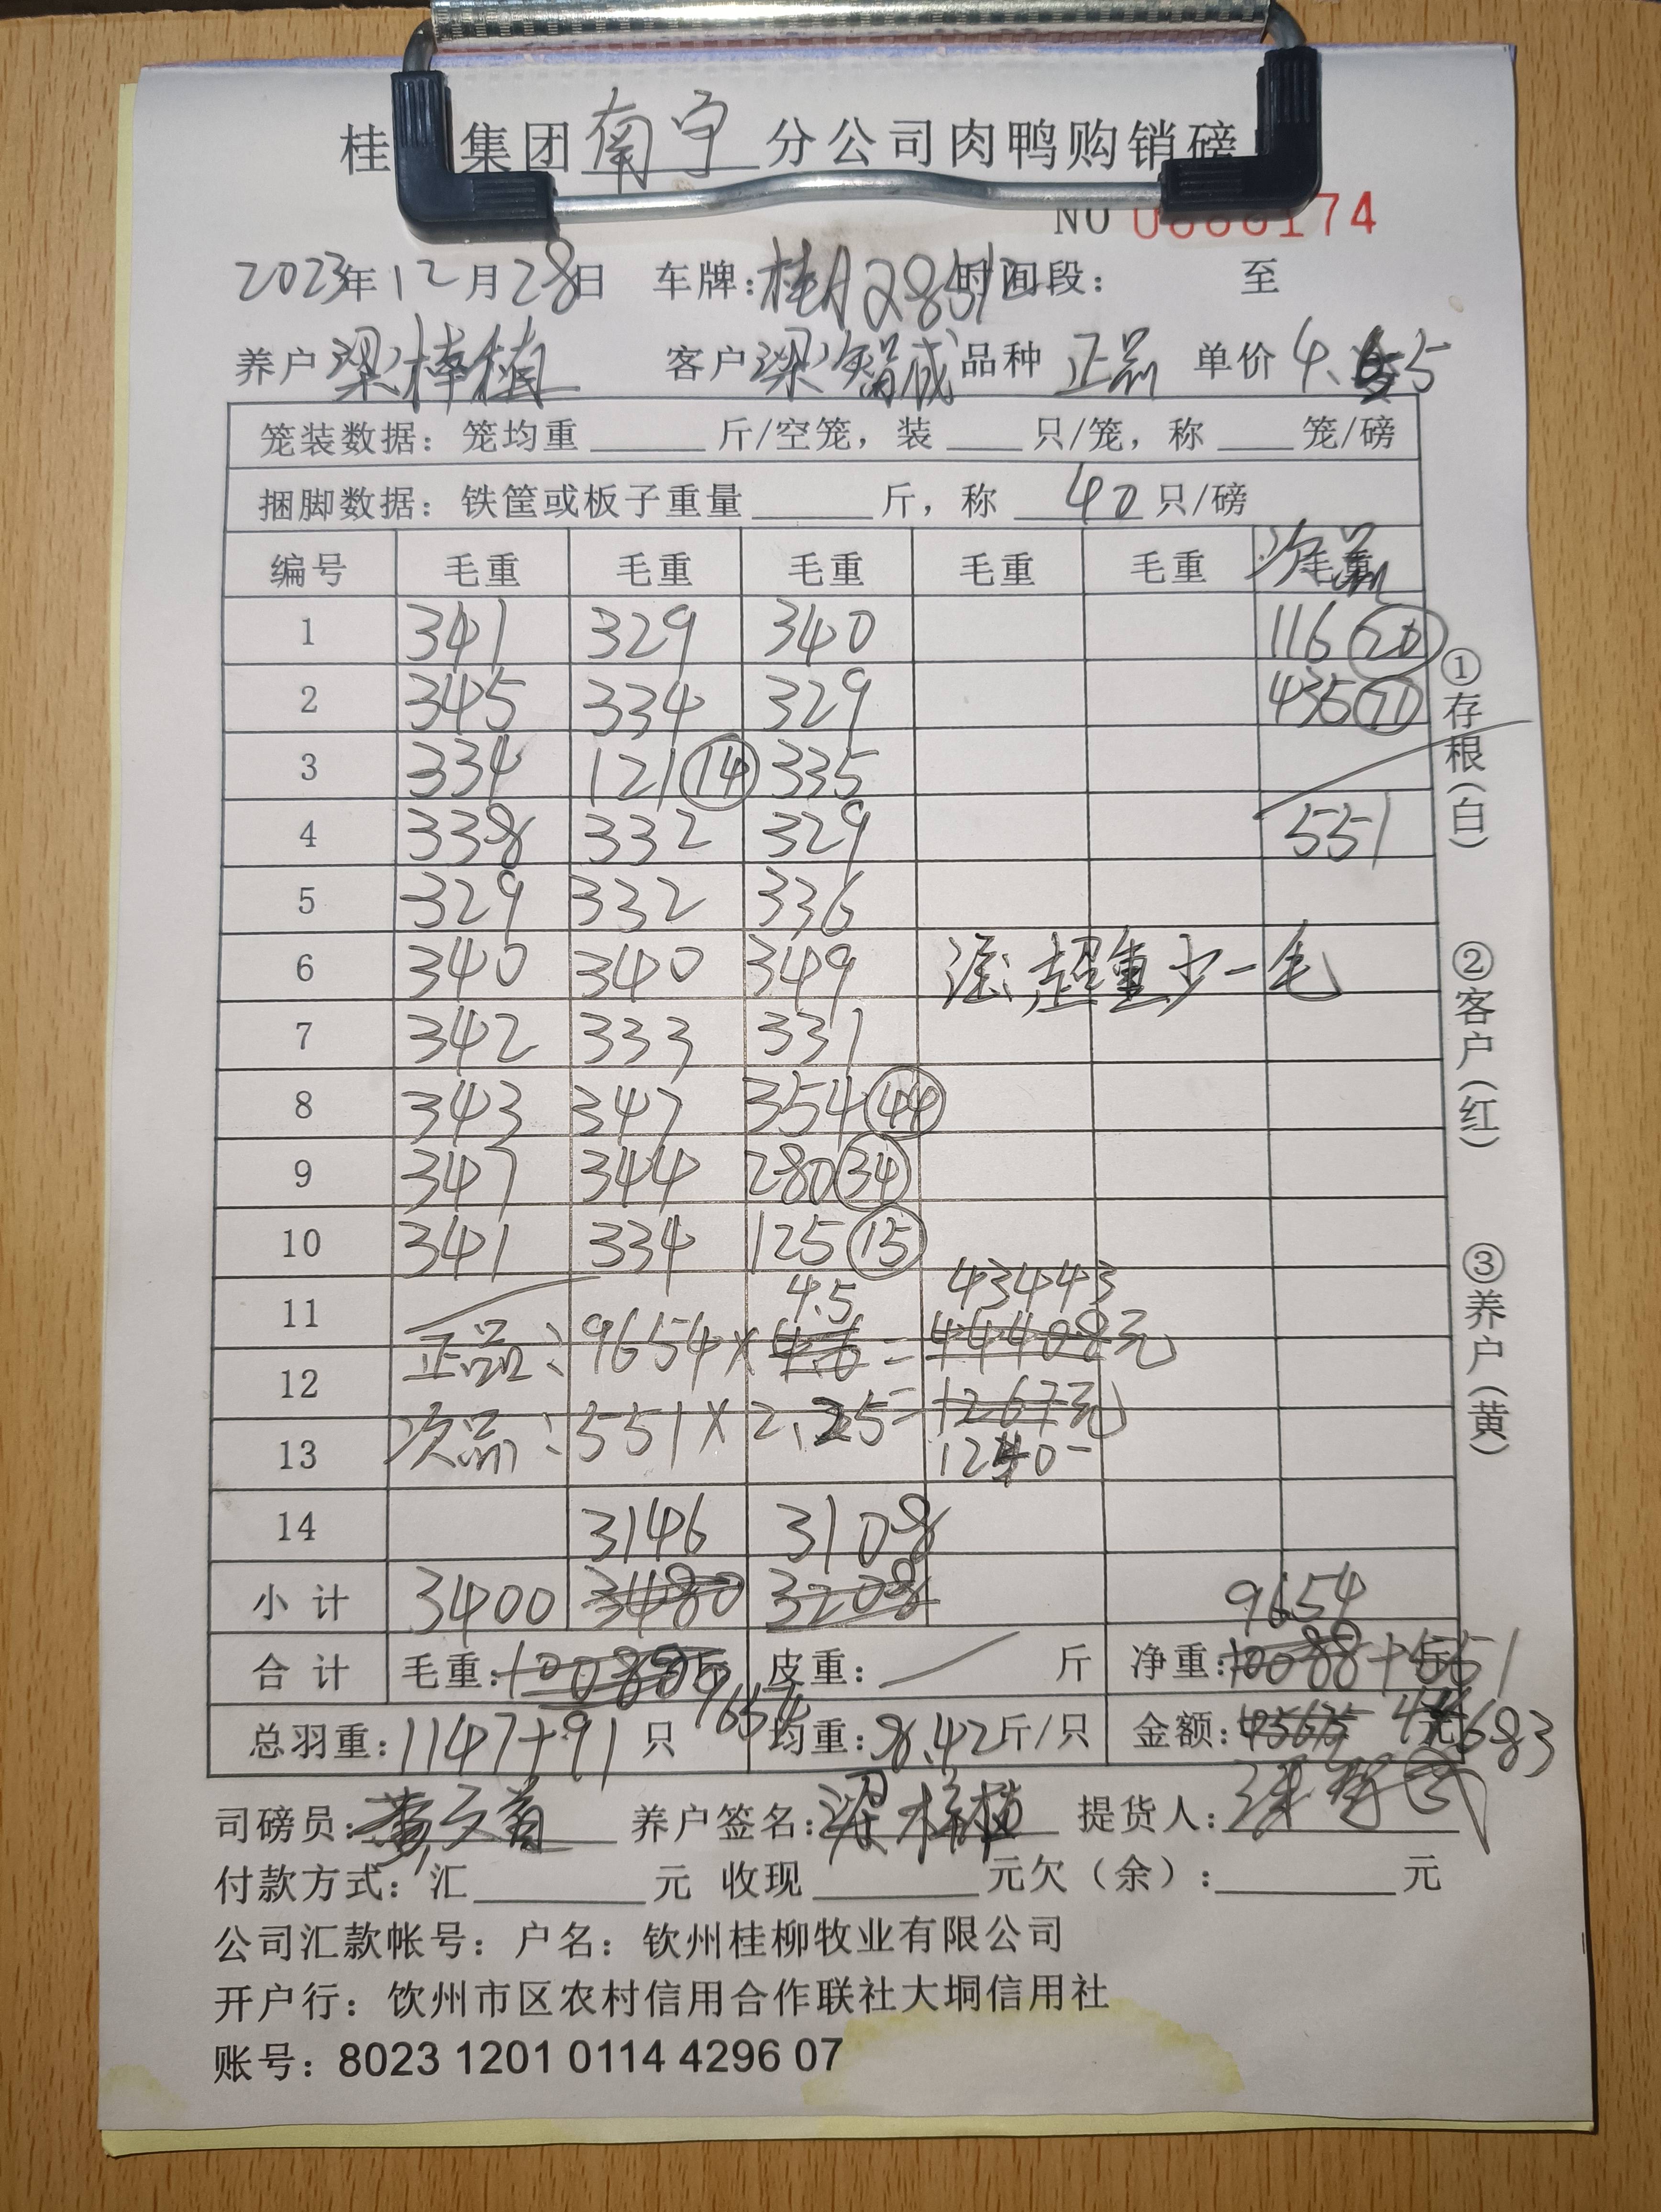 桂 集团 南宁 分公司肉鸭购销磅
NO 0886174
2023年12月28日 车牌：桂A28512 时间段： 至
养户 梁棒植 客户 梁智成 品种 正品 单价 4.5
笼装数据：笼均重 斤/空笼，装 只/笼，称 笼/磅
捆脚数据：铁筐或板子重量 斤，称 40 只/磅
编号 毛重 毛重 毛重 毛重 毛重 毛重 次品
1 341 329 340 116 20
2 345 334 329 435 71
3 334 121 14 335
4 338 332 329 551
5 329 332 336
6 340 340 349 注：超重少一毛
7 342 333 331
8 343 347 354 44
9 347 344 280 34
10 341 334 125 15
4.5 43443
11 正品：9654×4.6=44408元
12
13 次品：551×2.25=1267元
1240-
14 3146 3108
小计 3400 3480 3208 9654
合计 毛重： 9654 皮重： 斤 净重：10088+551
总羽重：1147+91 只 均重：8.42斤/只 金额： 元 44683
司磅员： 养户签名：梁棒植 提货人：
付款方式：汇 元 收现 元欠（余）： 元
公司汇款帐号：户名：钦州桂柳牧业有限公司
开户行：钦州市区农村信用合作联社大垌信用社
账号：8023 1201 0114 4296 07
①存根（白）
②客户（红）
③养户（黄）